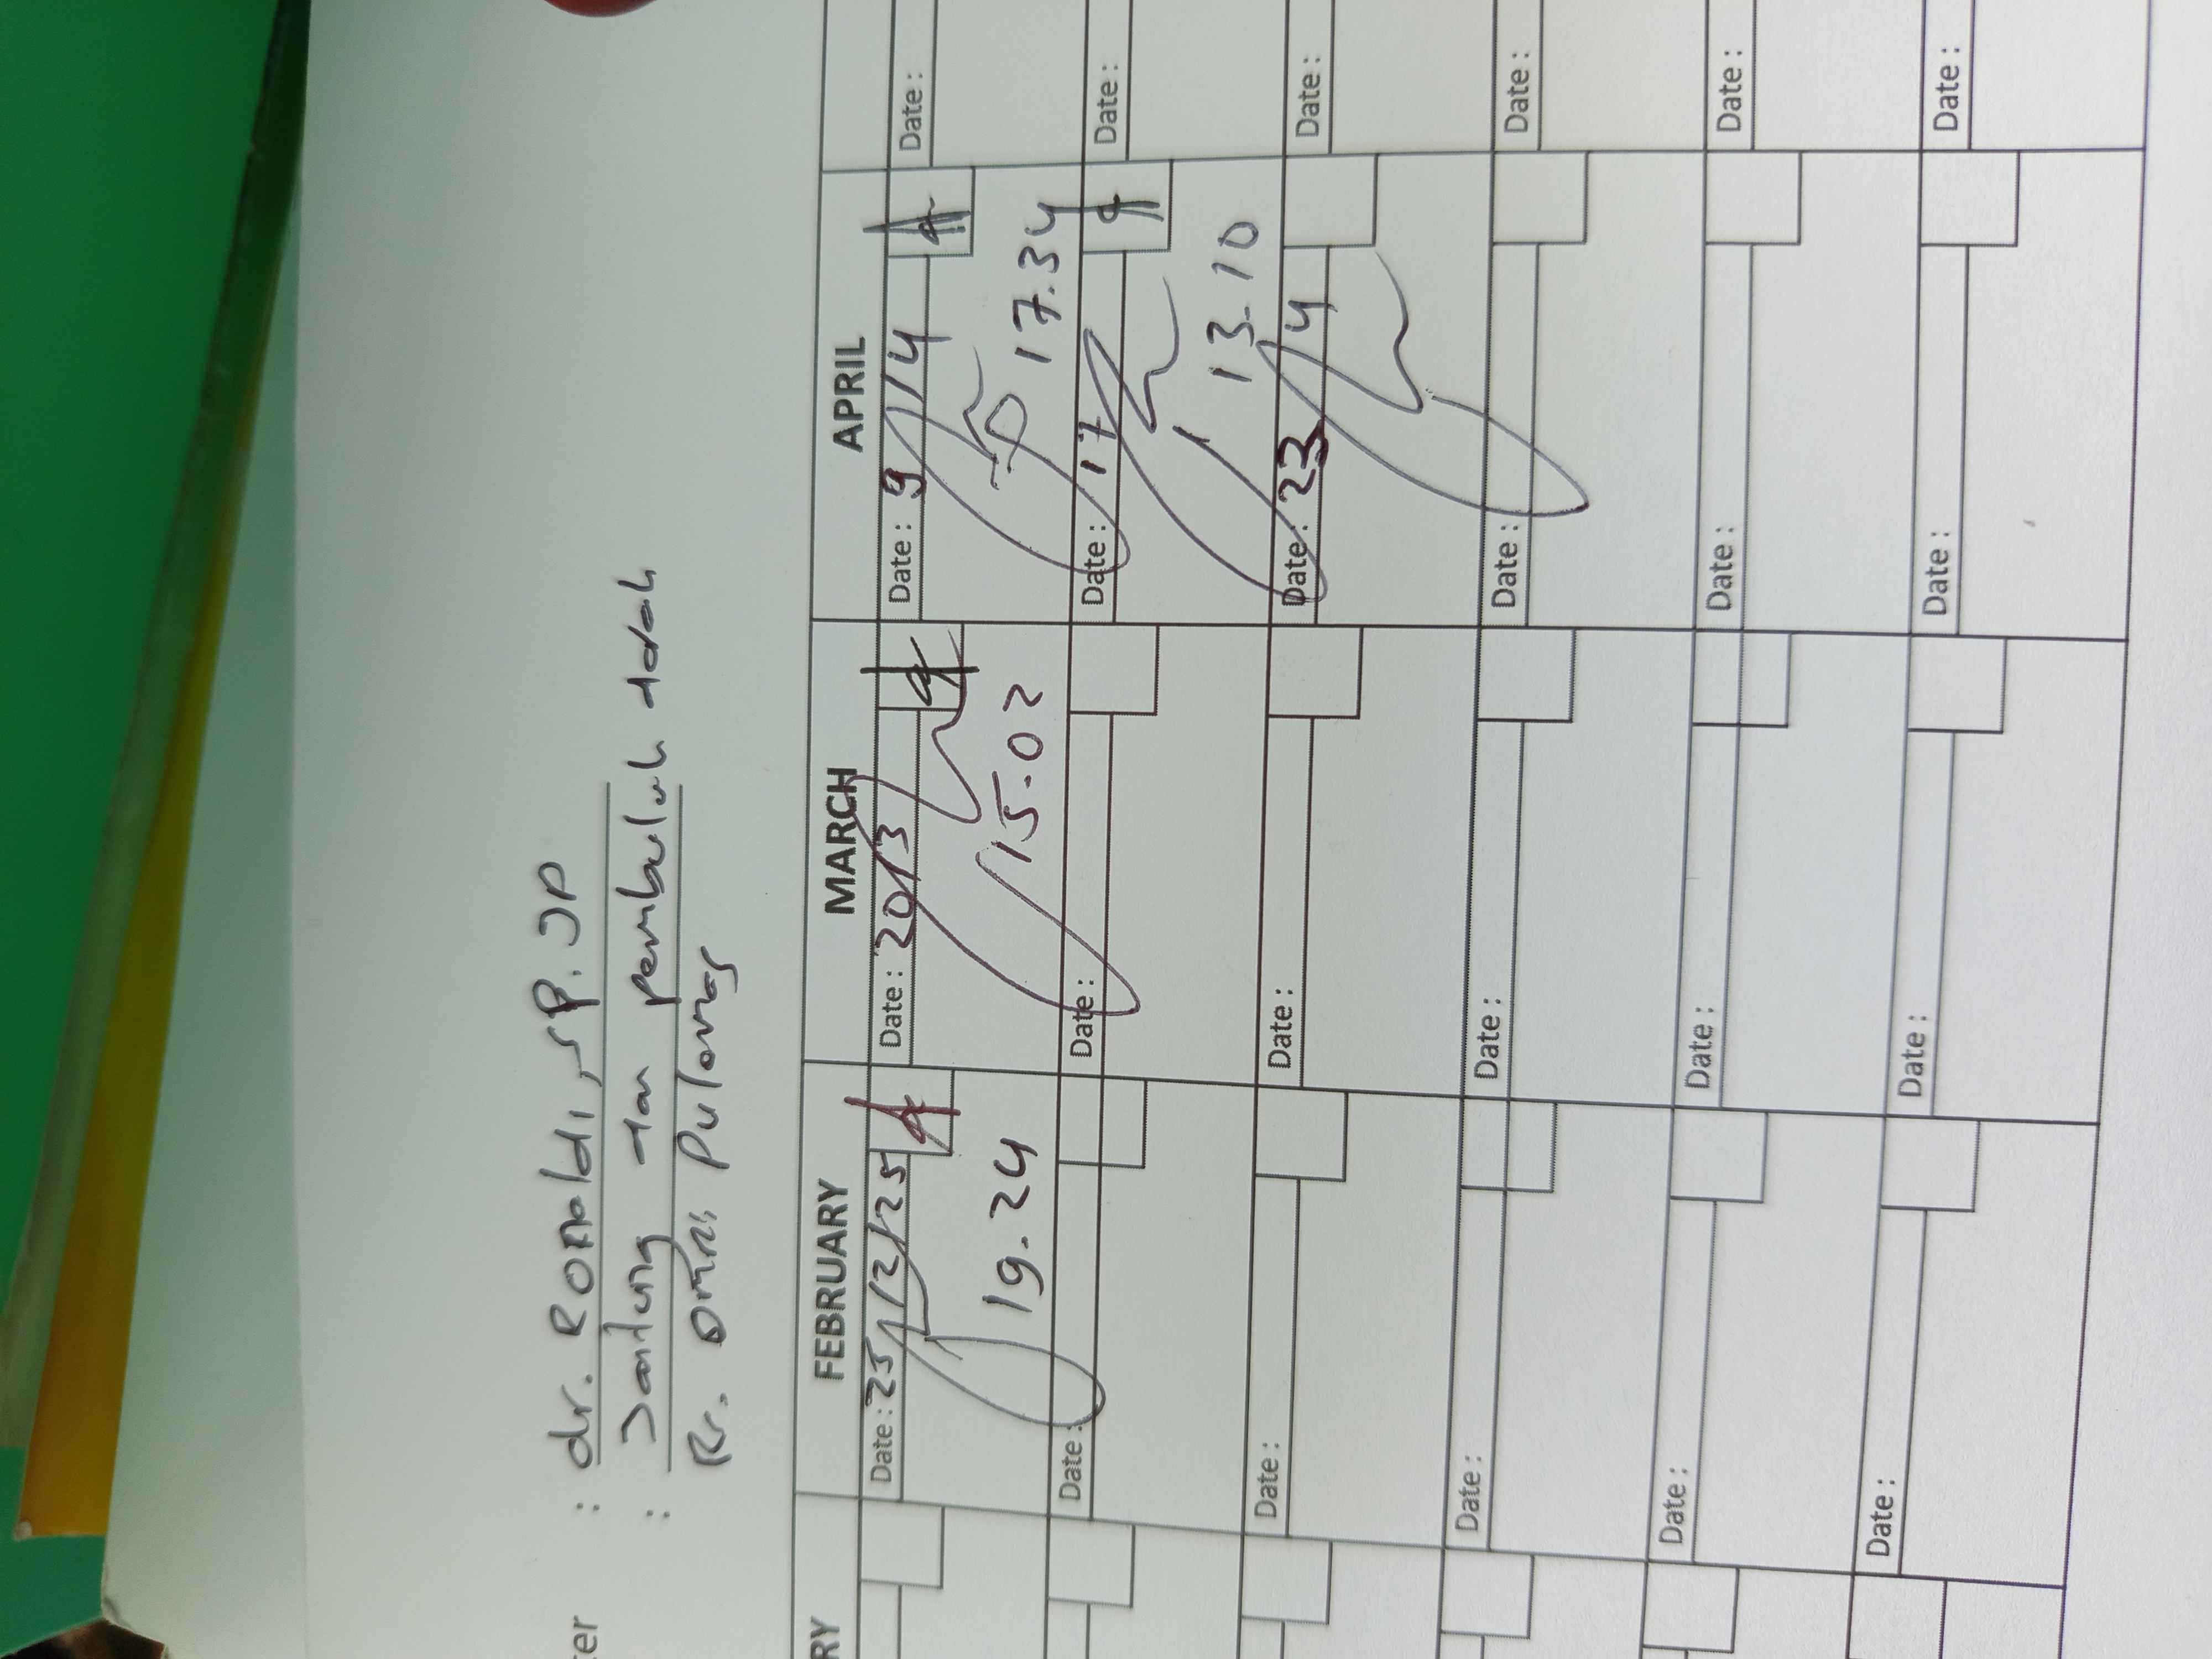 ter : dr. Ronaldi, SP. JP
: Jantung dan pembuluh darah
Rs. Omni Pulomas
RY FEBRUARY MARCH APRIL
Date : 25/2/25 Date : 20/3 Date : 9/4 Date :
19.24 15.02 17.34
Date : Date : Date : 17 Date :
13.10
Date : Date : Date : 23/4 Date :
Date : Date : Date : Date :
Date : Date : Date : Date :
Date : Date : Date : Date :